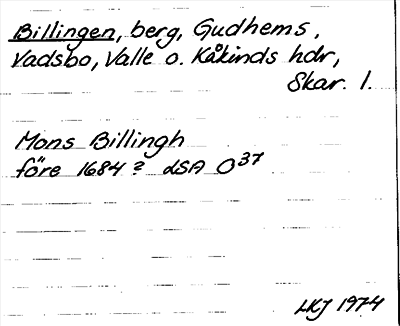 Billingen, berg, Gudhems,
Vadsbo, Valle o. Kåkinds hdr,
Skar. l.
Mons Billingh
före 1684? LSA O37
LKJ 1974